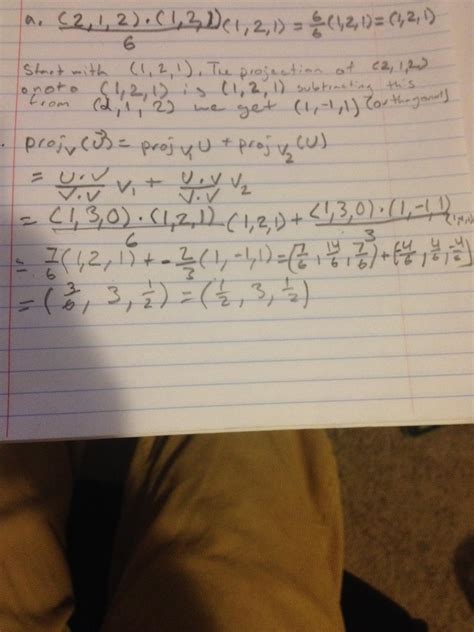 a. (2,1,2)·(1,2,1)/6 (1,2,1) = 6/6 (1,2,1) = (1,2,1)
Start with (1,2,1). The projection of (2,1,2)
onoto (1,2,1) is (1,2,1) subtracting this
from (2,1,2) we get (1,-1,1) (orthogonal)
proj_V(U) = proj_V₁ U + proj_V₂ (U)
= U·V/V·V V₁ + U·V/V·V V₂
= (1,3,0)·(1,2,1)/6 (1,2,1) + (1,3,0)·(1,-1,1)/3
= 7/6 (1,2,1) + -2/3 (1,-1,1) = (7/6, 14/6, 7/6) + (-4/6, 4/6, -4/6)
= (3/6, 3, 1/2) = (1/2, 3, 1/2)